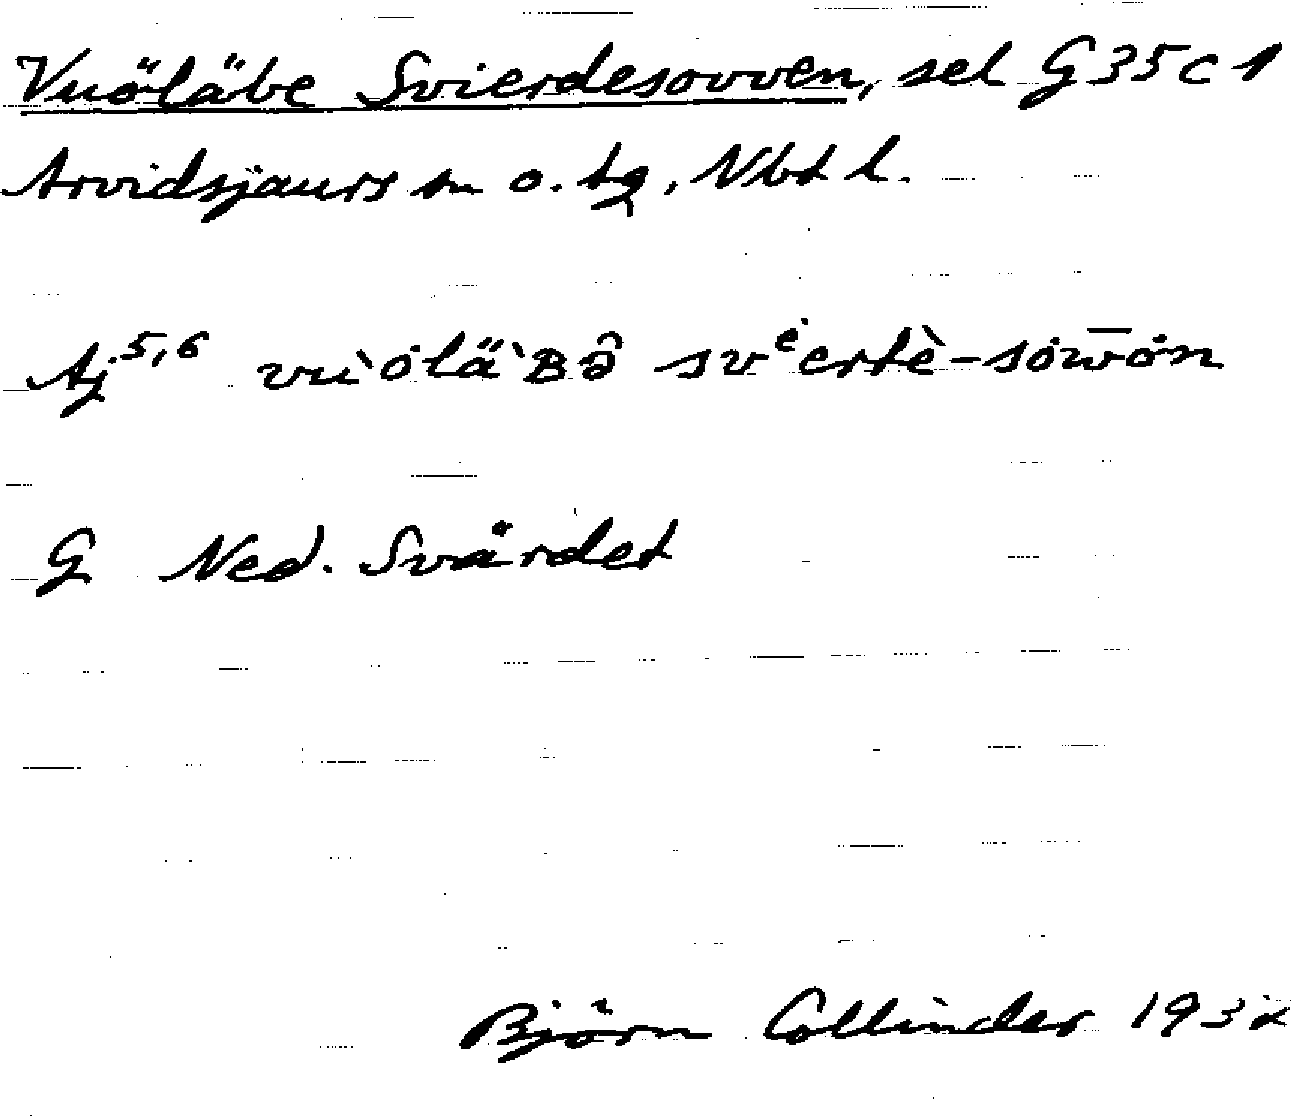 Vuöläbe Svierdesovven, sel G35c1
Arvidsjaurs sn o. tg, Nbt l.
Aj⁵,⁶ vuˋȯlä ̀ʙə̑ svᵉ̇ertė̀-sȯw̅ȯn
G Ned. Svärdet
Björn Collinder 1932